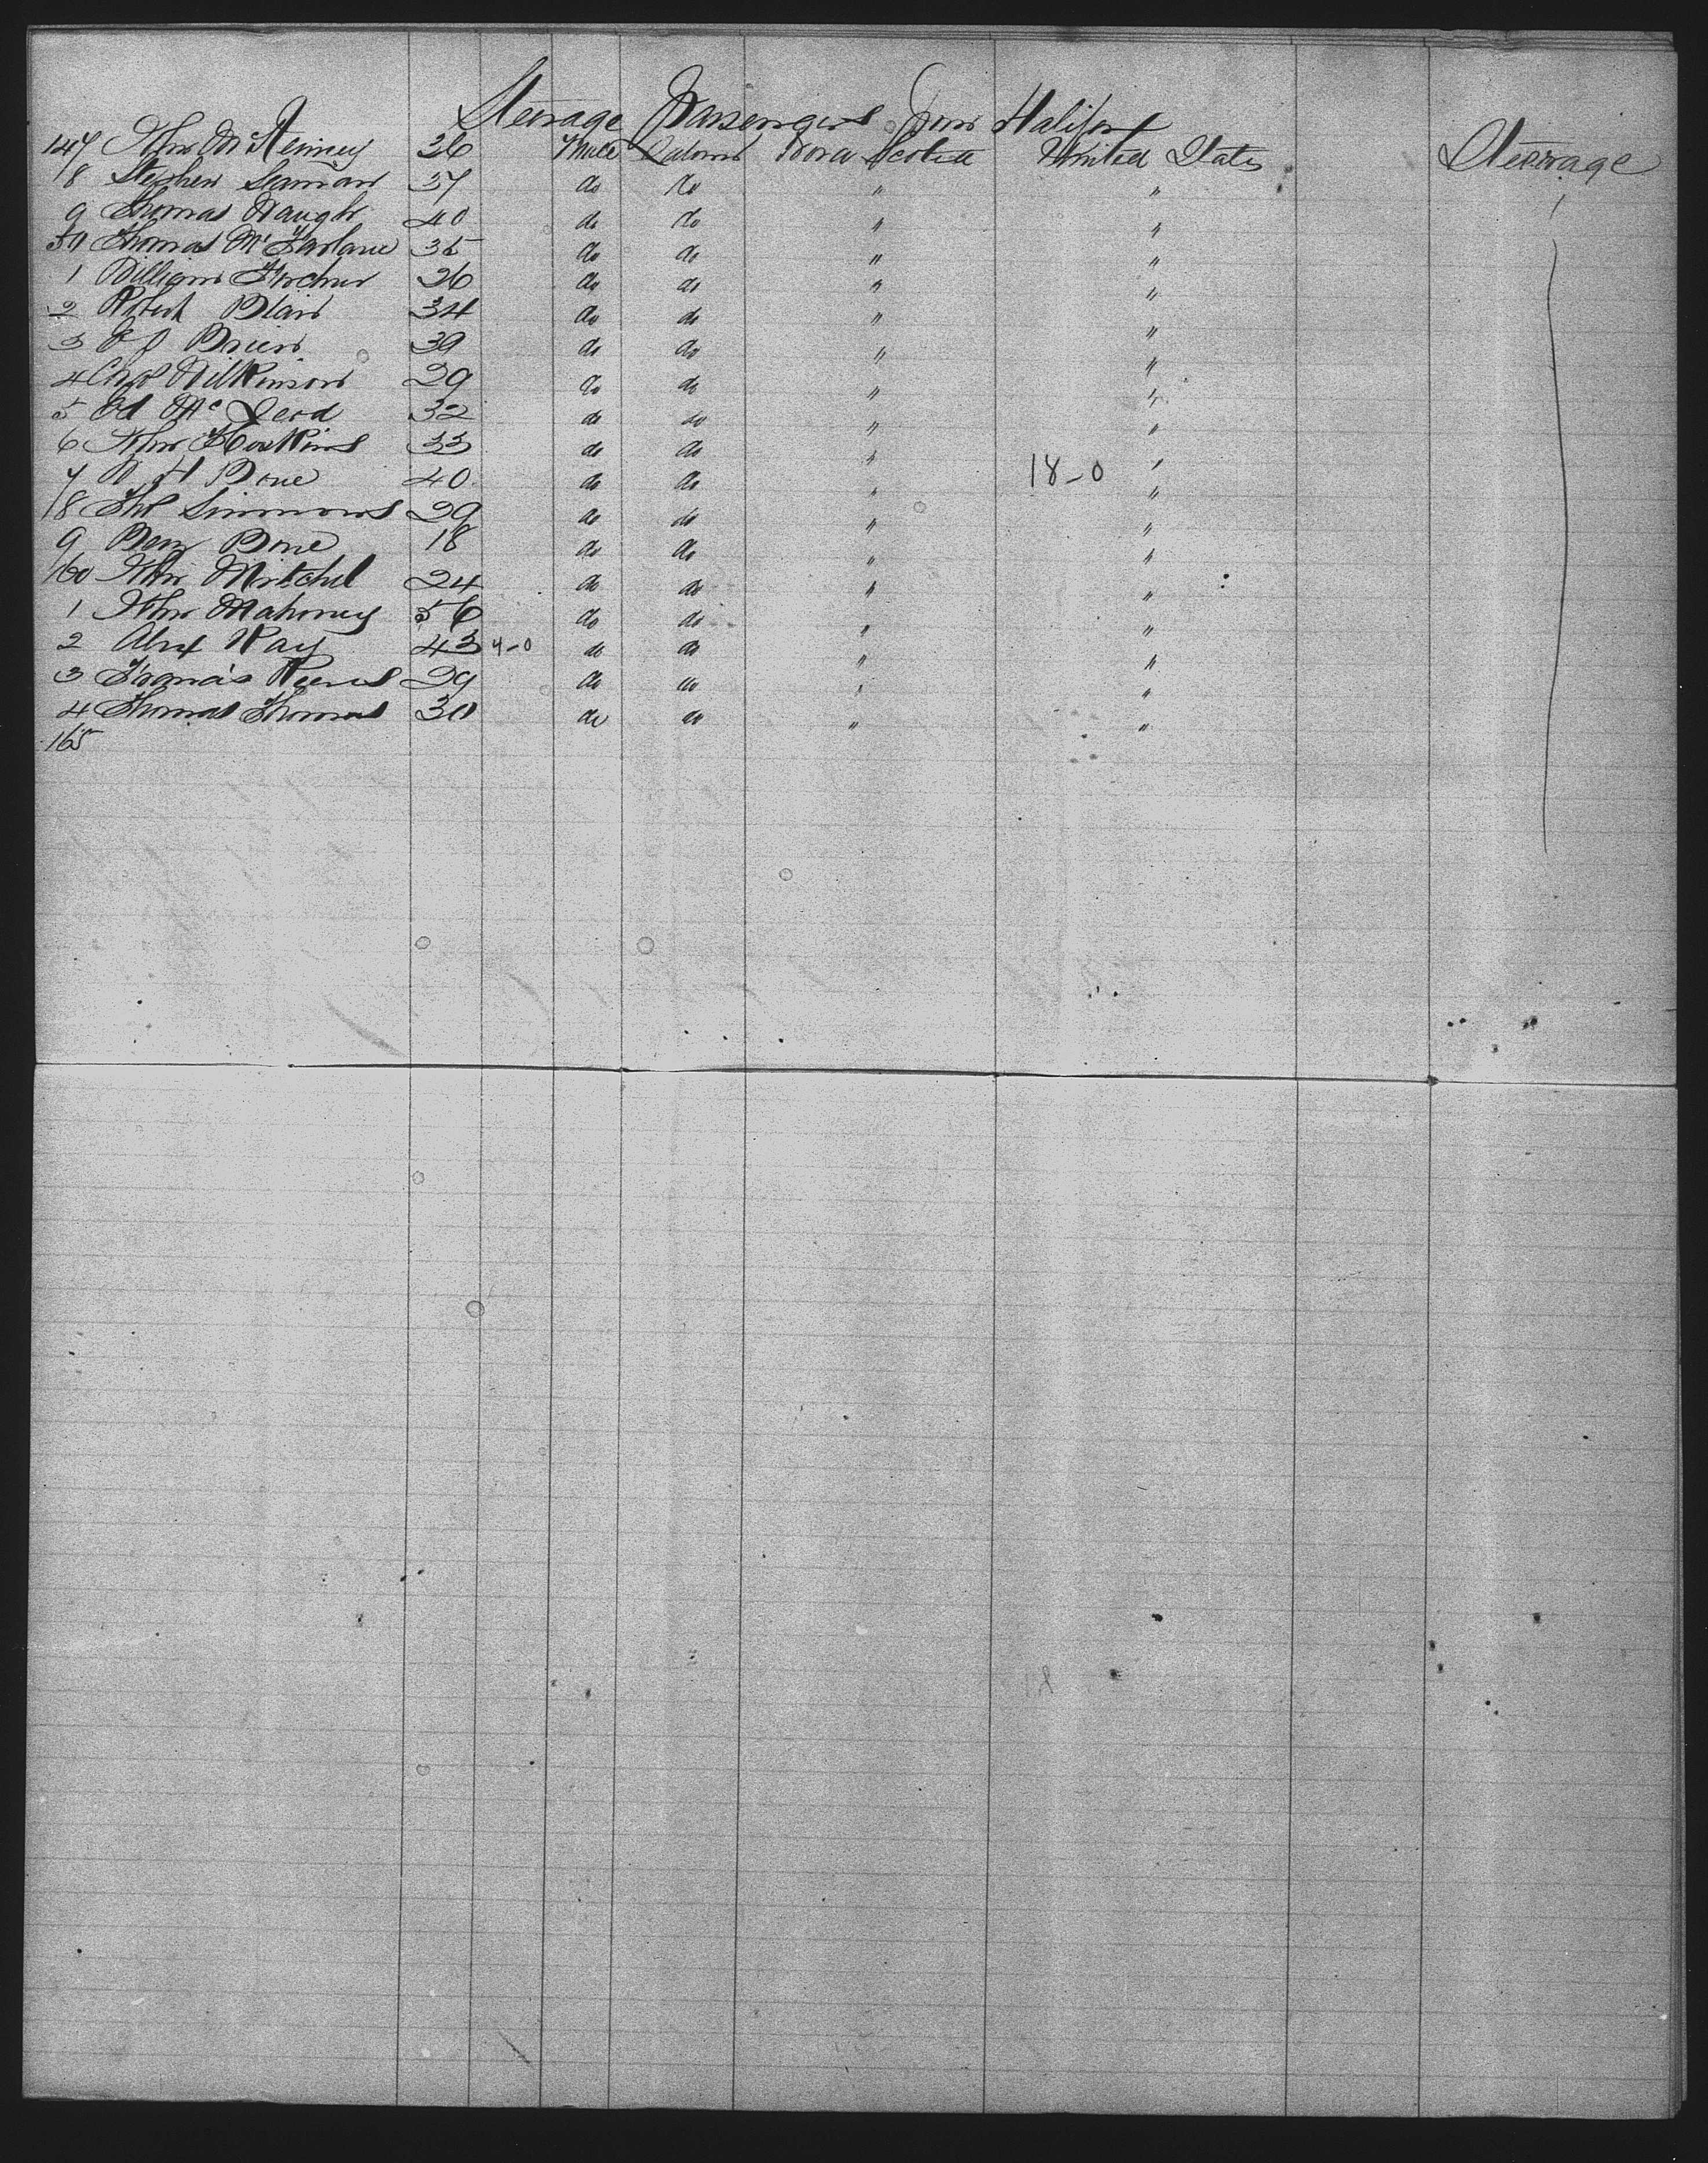 Steerage Passengers from Halifax
147 John McKenney 36 Male Laborer Nova Scotia United States Steerage
8 Stephen Seaman 37 do do " "
9 Thomas Waugh 40 do do " "
50 Thomas McFarlane 35 do do " "
1 William Archer 26 do do " "
2 Robert Blair 34 do do " "
3 Brien 39 do do " "
4 Chas Wilkinson 29 do do " "
5 Ed McLeod 32 do do " "
6 John Hoskins 33 do do " "
7 H Bone 40 do do " 18-0 "
18 Simmons 29 do do " "
9 Benj Bone 18 do do " "
160 John Mitchel 24 do do " "
1 John Mahoney 56 do do " "
2 Alex Ray 43 4-0 do do " "
3 Francis 29 do do " "
4 Thomas Thomas 30 do do " "
165